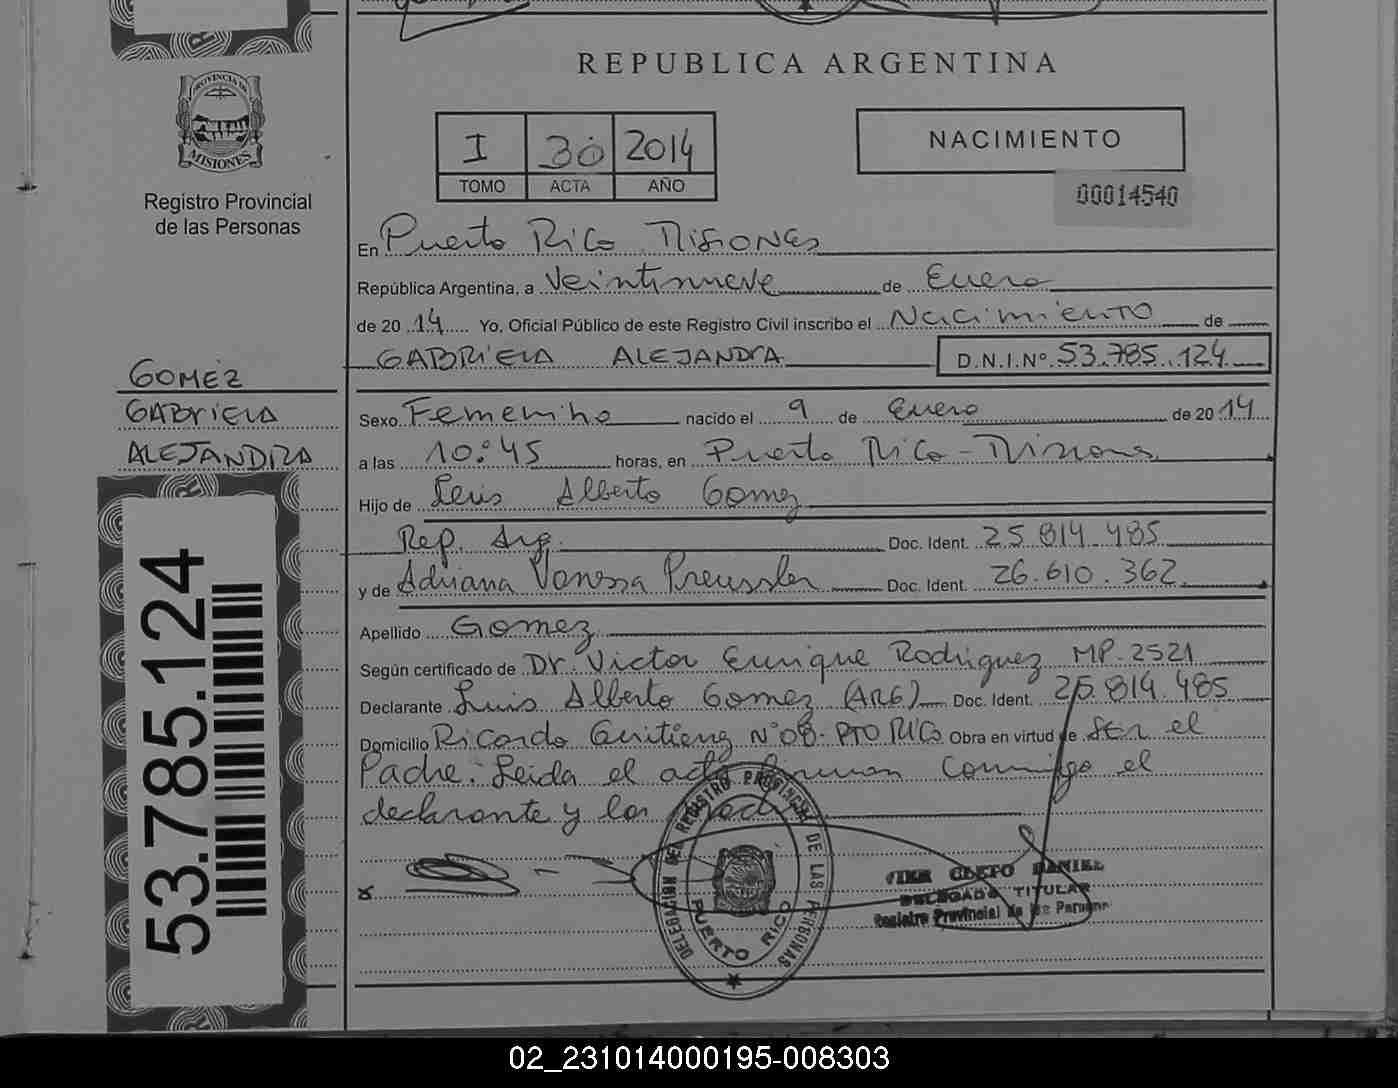 REPUBLICA ARGENTINA
PROVINCIA DE
MISIONES
Registro Provincial
de las Personas
I 30 2014
TOMO ACTA AÑO
NACIMIENTO
00014540
En Puerto Rico Misiones
República Argentina, a Veintinueve de Enero
de 20 14 Yo, Oficial Público de este Registro Civil inscribo el Nacimiento de
GABRIELA ALEJANDRA D.N.I.Nº 53.785.124
GOMEZ
GABRIELA
ALEJANDRA
Sexo Femenino nacido el 9 de Enero de 20 14
a las 10:45 horas, en Puerto Rico - Misiones
Hijo de Luis Alberto Gomez
Rep. Arg. Doc. Ident. 25.814.485
y de Adriana Vanessa Preussler Doc. Ident. 26.610.362
Apellido Gomez
Según certificado de Dr. Victor Enrique Rodriguez MP-2521
Declarante Luis Alberto Gomez (ARG) Doc. Ident. 25.814.485
Domicilio Ricardo Gutierrez Nº 08-PTO RICO Obra en virtud de ser el
Padre. Leida el acta firman conmigo el
declarante y los
53.785.124
DELEGACION DEL REGISTRO PROVINCIAL DE LAS PERSONAS
PUERTO RICO
x
CLETO DANIEL
DELEGADO TITULAR
Registro Provincial de las Personas
02_231014000195-008303